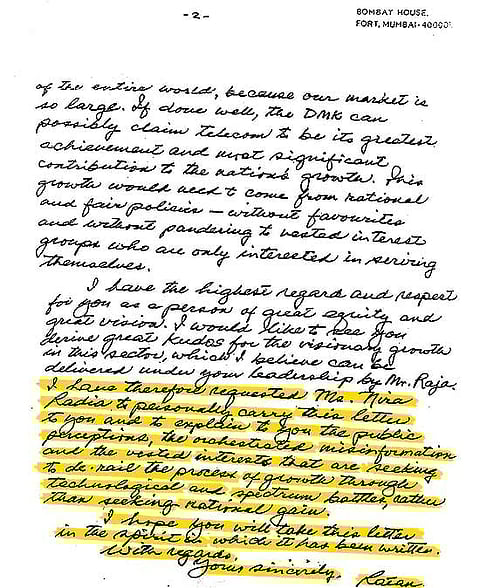 - 2 -
BOMBAY HOUSE.
FORT, MUMBAI-400001
of the entire world, because our market is
so large. If done well, the DMK can
possibly claim telecom to be its greatest
achievement and most significant
contribution to the nation's growth. This
growth would need to come from rational
and fair policies – without favourites
and without pandering to vested interest
groups who are only interested in serving
themselves.
I have the highest regard and respect
for you as a person of great equity and
great vision. I would like to see you
derive great kudos for the visionary growth
in this sector, which I believe can be
delivered under your leadership by Mr. Raja.
I have therefore requested Ms. Nira
Radia to personally carry this letter
to you and to explain to you the public
perceptions, the orchestrated misinformation
and the vested interests that are seeking
to de-rail the process of growth through
technological and spectrum battles, rather
than seeking national gain.
I hope you will take this letter
in the spirit in which it has been written.
With regards.
Yours sincerely,
Ratan